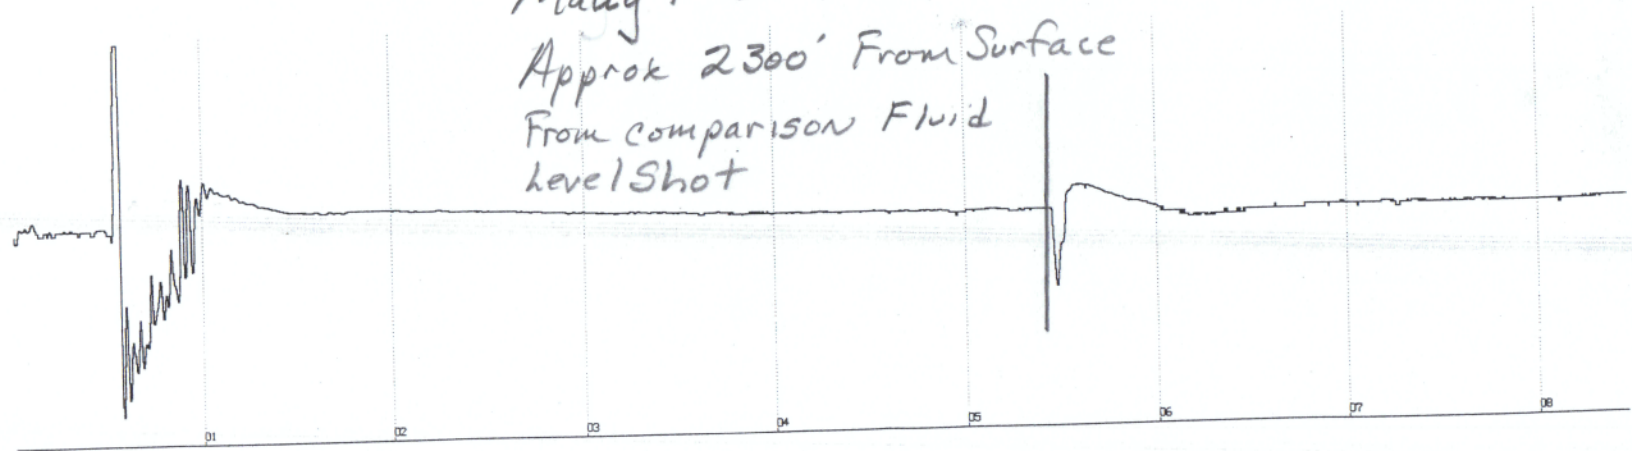 Approx 2300' From Surface
From comparison Fluid
Level Shot
01 02 03 04 05 06 07 08